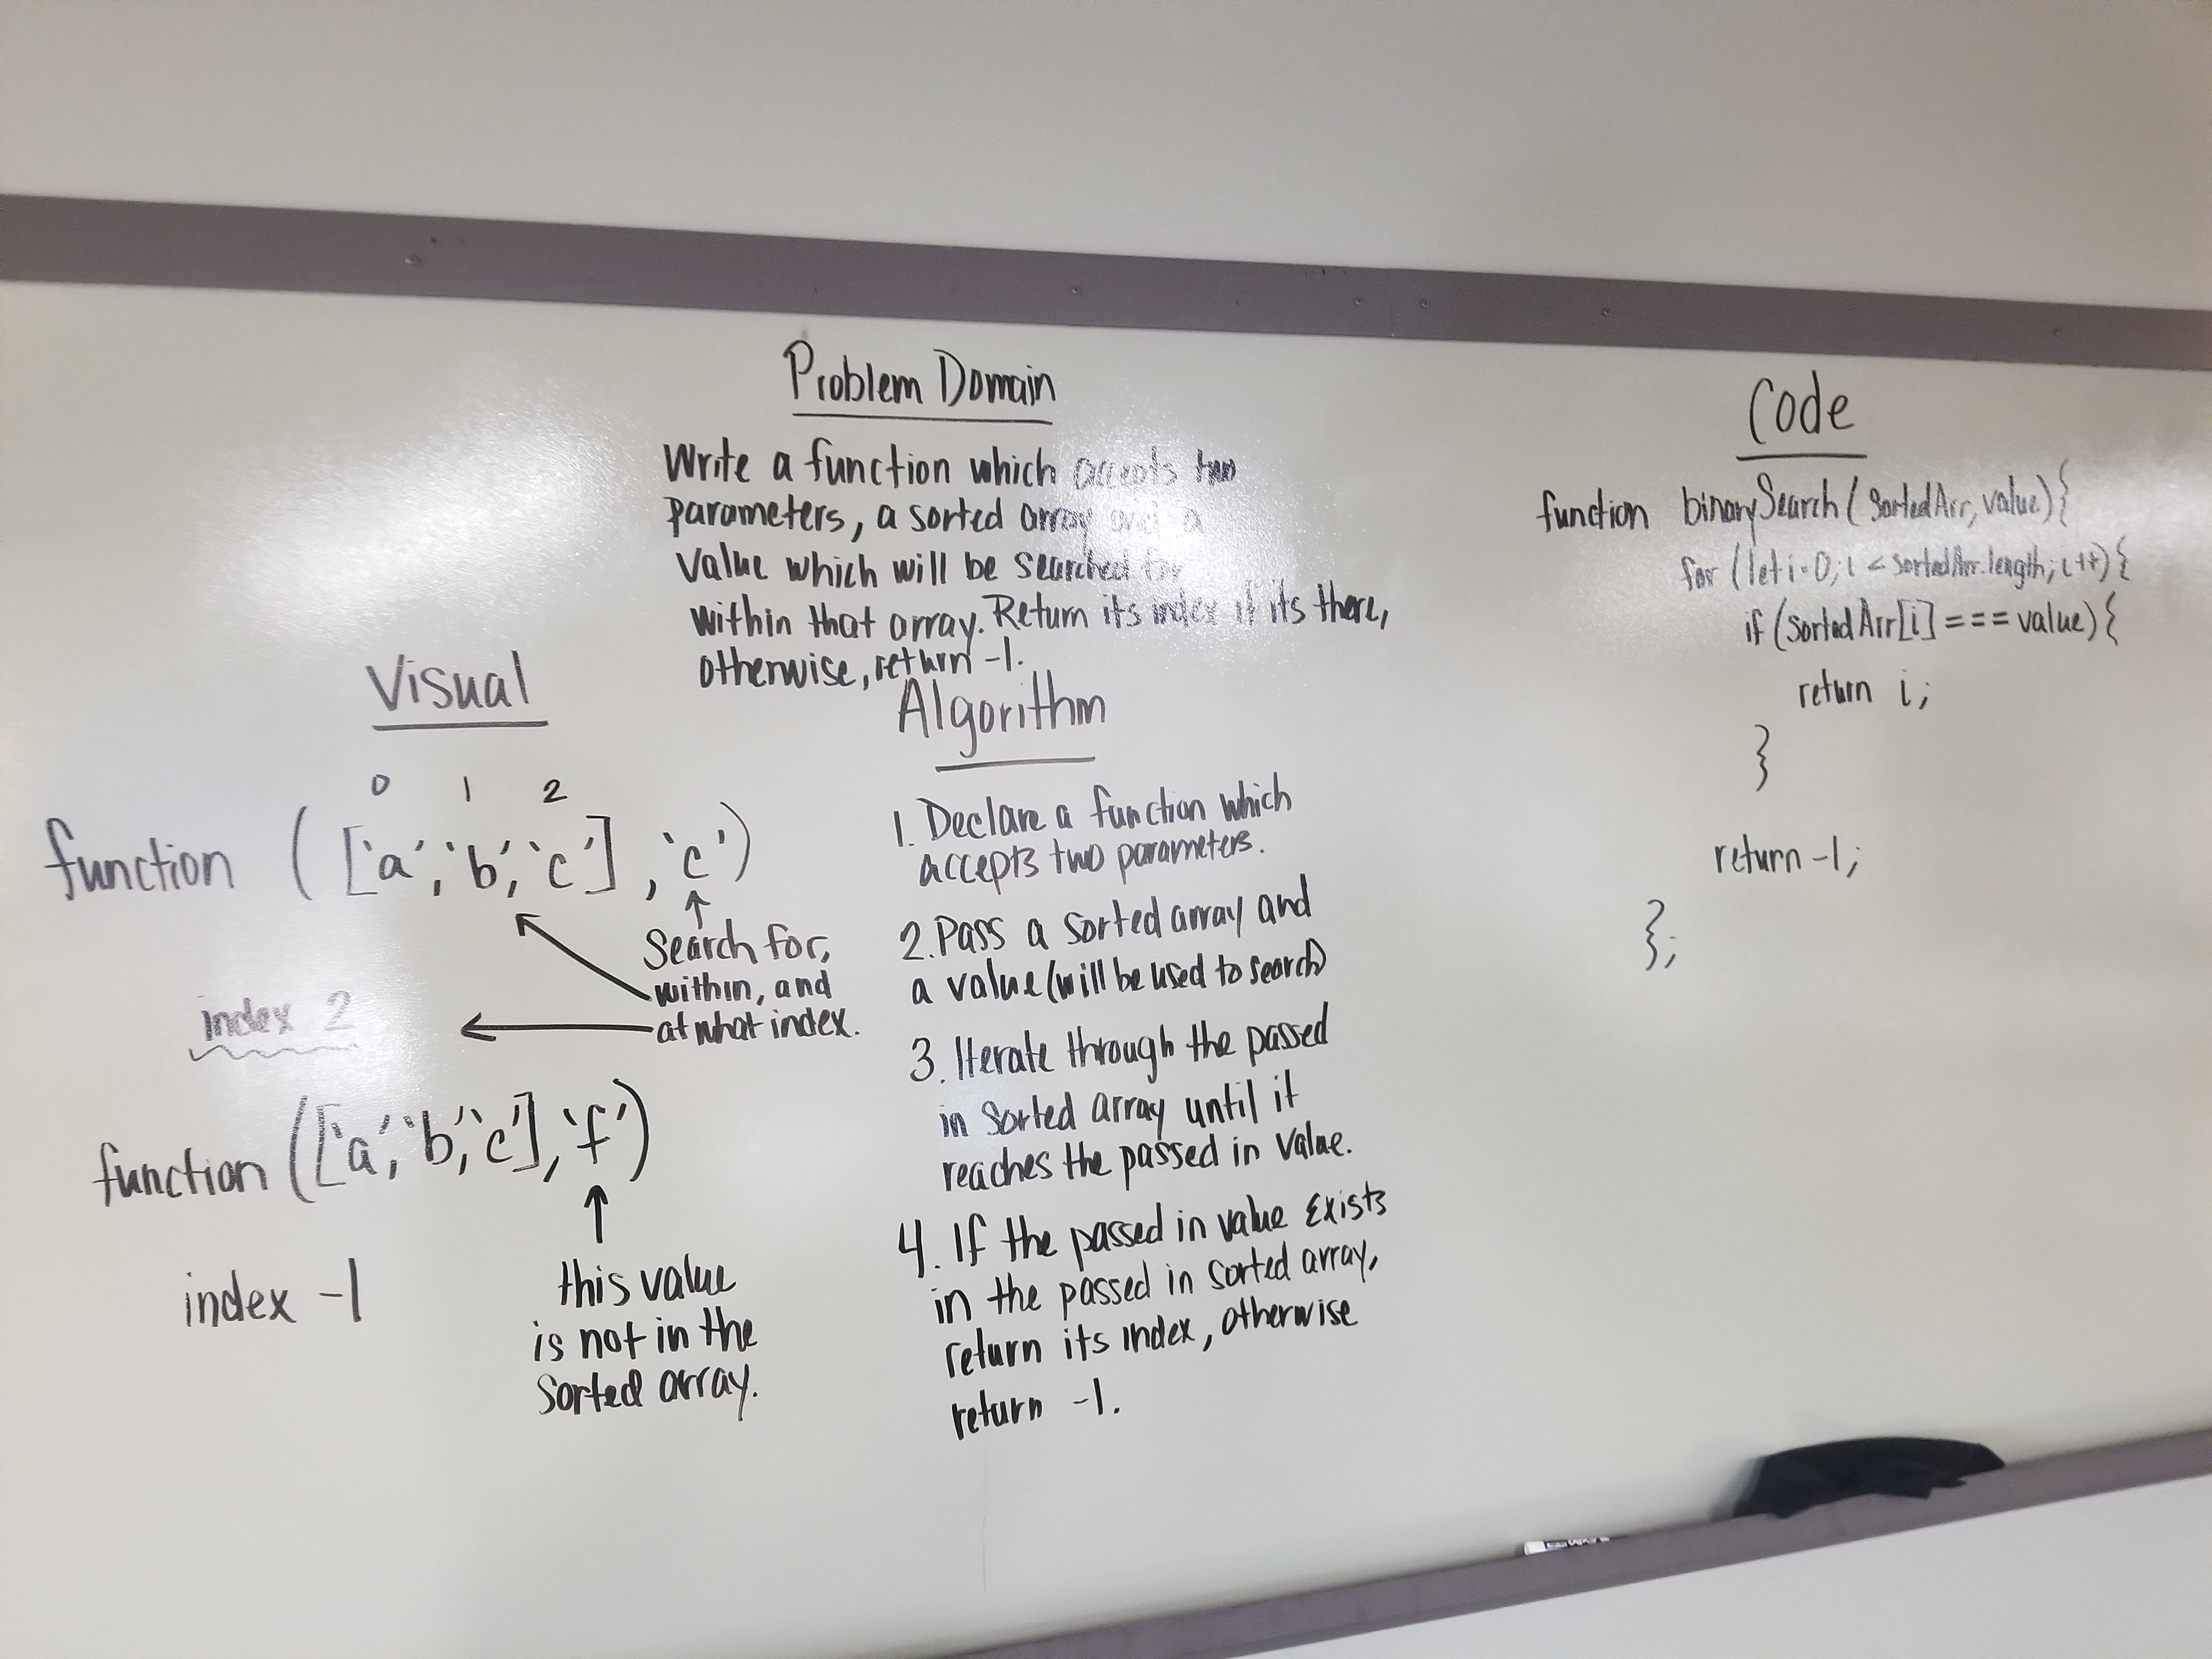 Problem Domain
Write a function which accepts two
parameters, a sorted array and a
value which will be searched for
within that array. Return its index if its there,
otherwise, return -1.
Visual
0 1 2
function (['a','b','c'],'c')
Search for,
within, and
at what index.
index 2
function (['a','b','c'],'f')
index -1
this value
is not in the
sorted array.
Algorithm
1. Declare a function which
accepts two parameters.
2. Pass a sorted array and
a value (will be used to search)
3. Iterate through the passed
in sorted array until it
reaches the passed in value.
4. If the passed in value exists
in the passed in sorted array,
return its index, otherwise
return -1.
Code
function binarySearch(sortedArr, value){
for (let i=0; i < sortedArr.length; i++){
if (sortedArr[i] === value){
return i;
}
return -1;
};